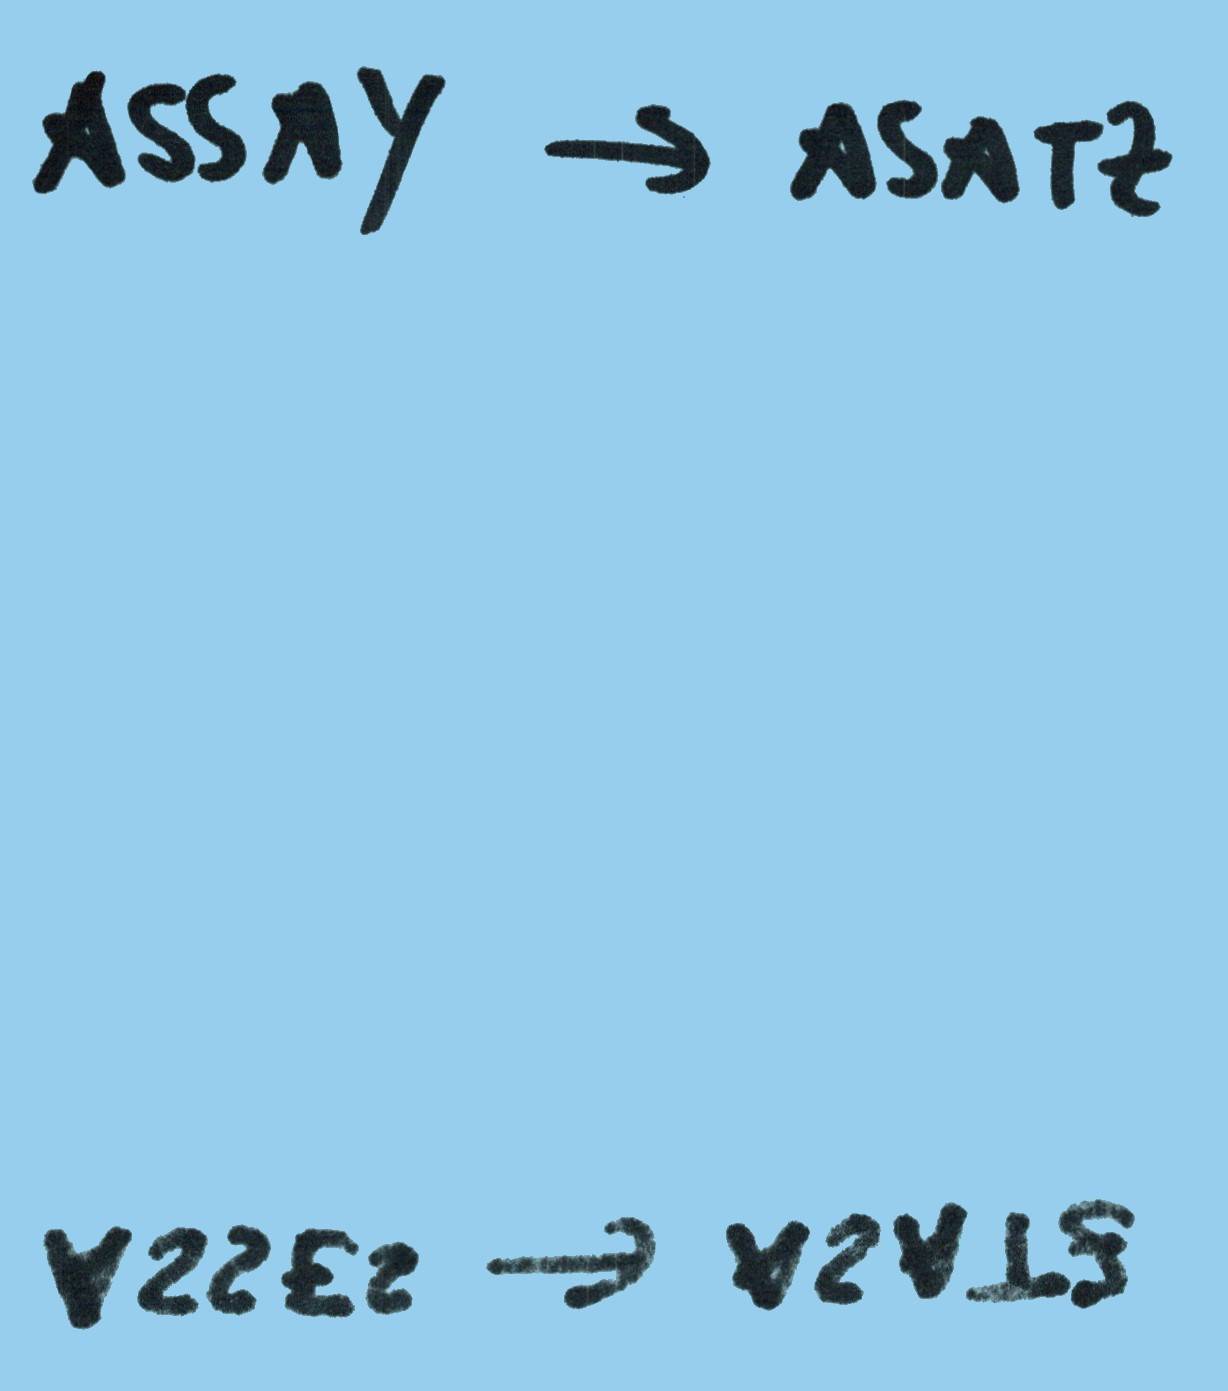 ASSAY → ASATZ
ASSES → ASATZ